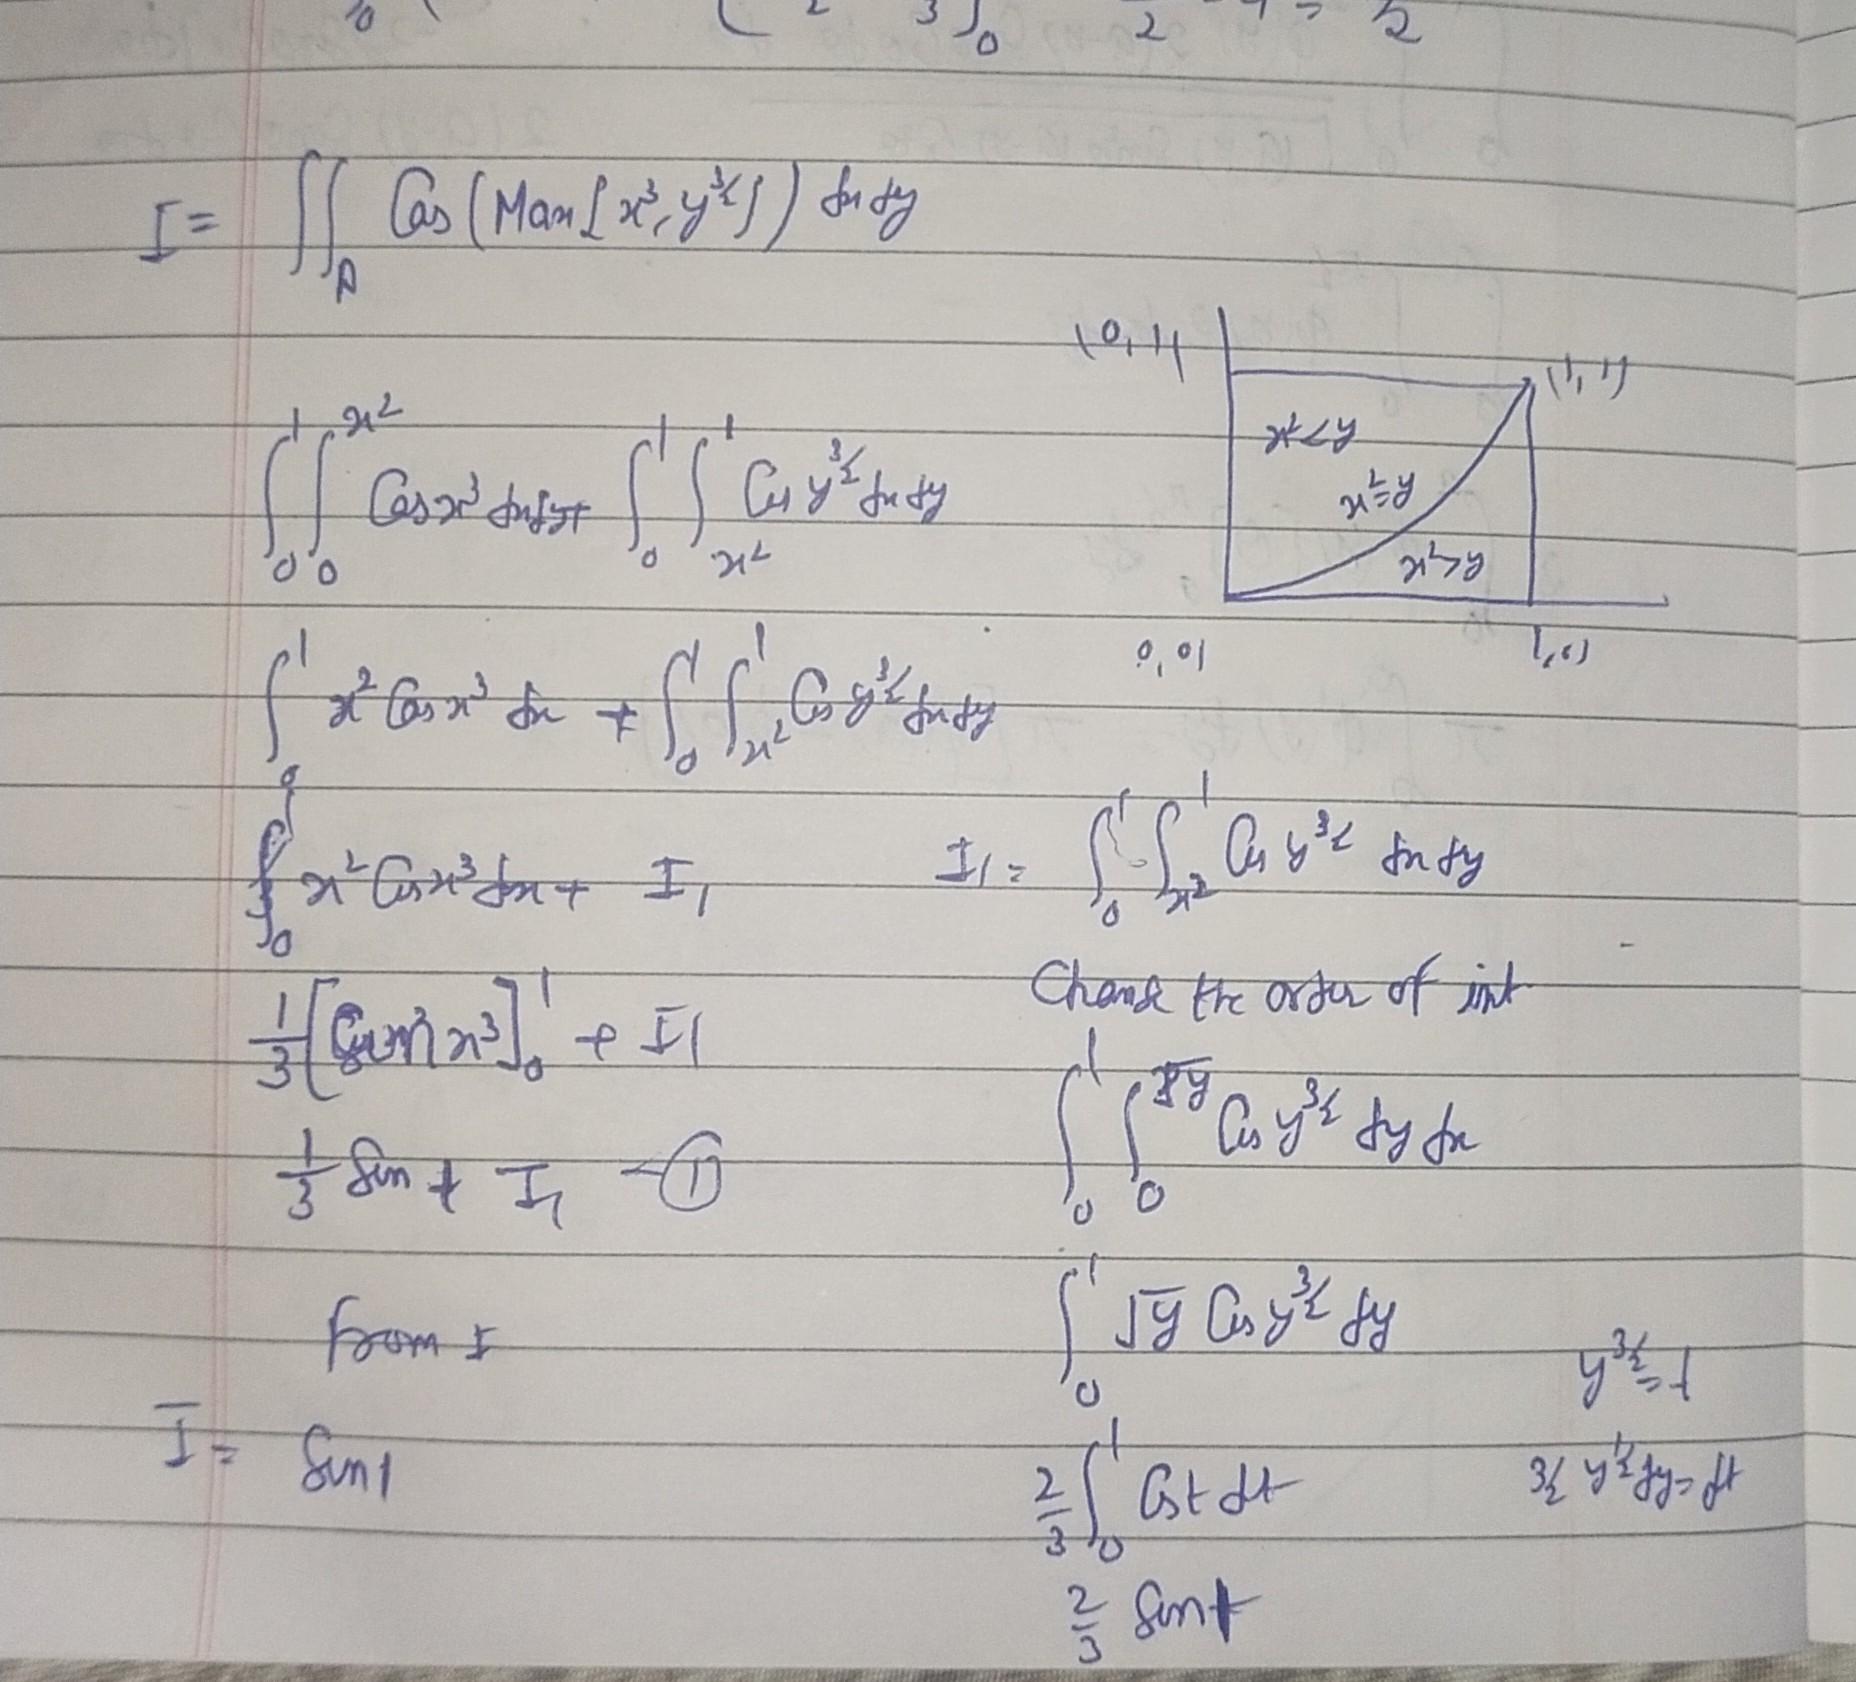 I = ∬_A Cos(Max{x³, y^{3/2}}) dx dy
(0,1)
(1,1)
x²<y
x²=y
x²>y
0,0)
1,0)
∫₀¹ ∫₀^{x²} Cos x³ dx dy + ∫₀¹ ∫_{x²}^1 Cos y^{3/2} dx dy
∫₀¹ x² Cos x³ dx + ∫₀¹ ∫_{x²}^1 Cos y^{3/2} dx dy
∫₀¹ x² Cos x³ dx + I₁
1/3 [Sin x³]₀¹ + I₁
1/3 Sin + I₁ — ①
from I
I = Sin 1
I₁ = ∫₀¹ ∫_{x²}^1 Cos y^{3/2} dx dy
Change the order of int
∫₀¹ ∫₀^{√y} Cos y^{3/2} dy dx
∫₀¹ √y Cos y^{3/2} dy
y^{3/2} = t
3/2 y^{1/2} dy = dt
2/3 ∫₀¹ Cos t dt
2/3 Sin 1